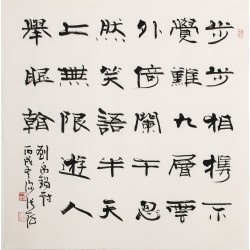 步步相攜不
覺難九層雲
外倚闌干忽
然笑語半天
上無限遊人
舉眼看
劉禹錫詩
丙戌